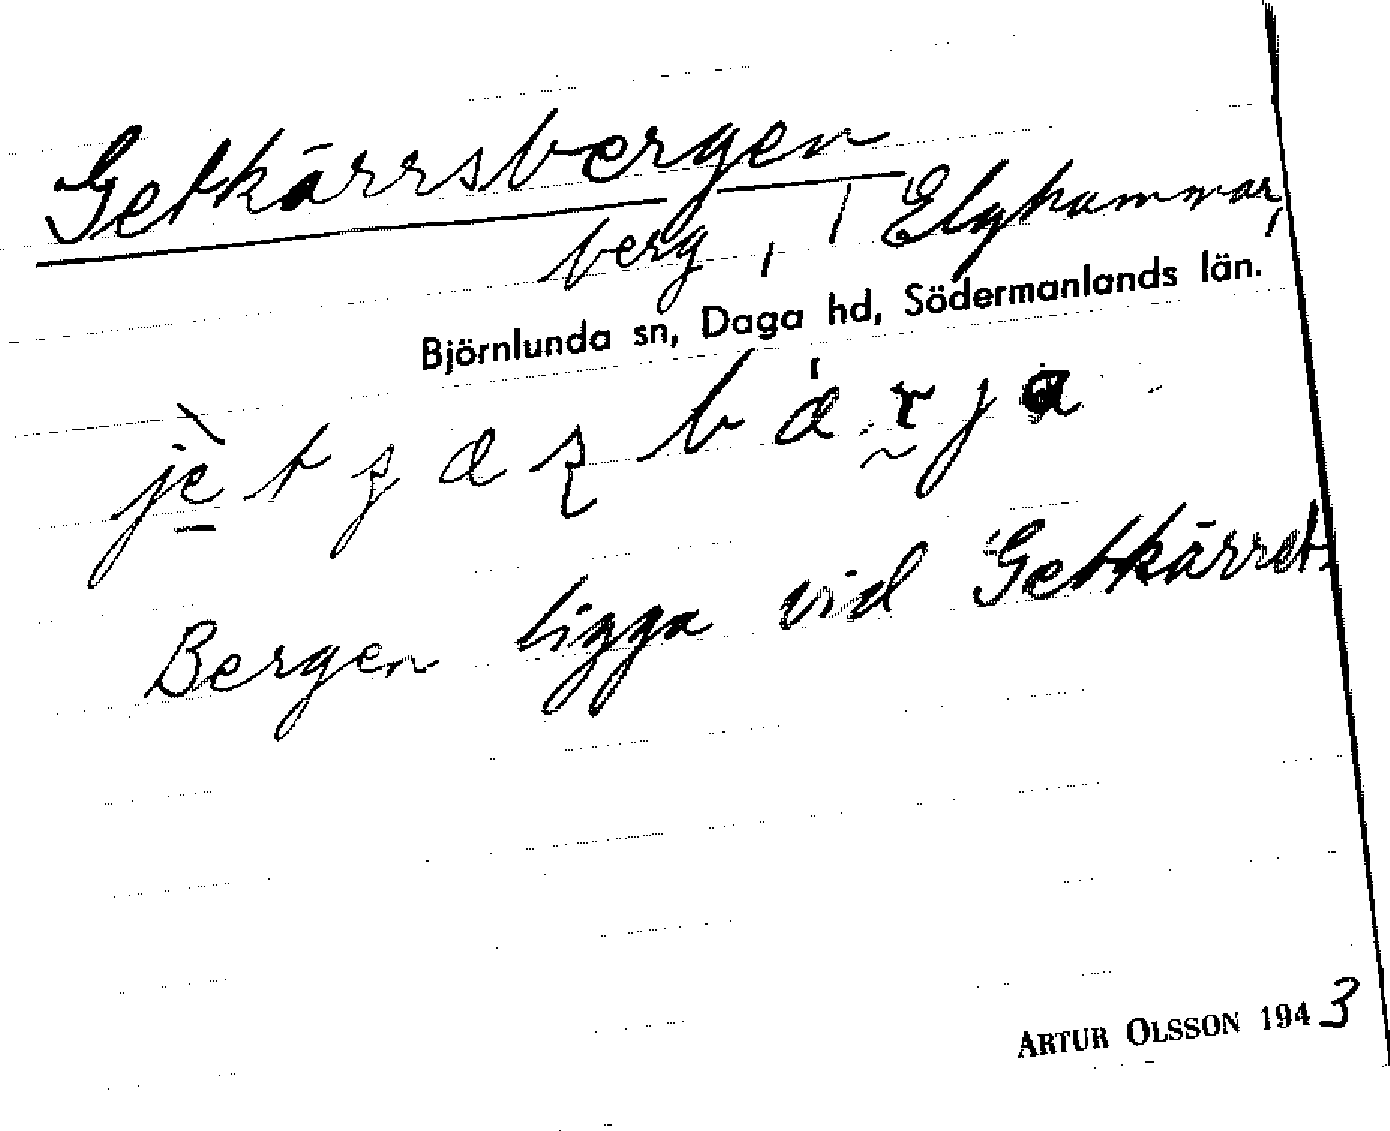 Getkärrsbergen
berg, i Elghammar,
Björnlunda sn, Daga hd, Södermanlands län.
Bergen ligga vid Getkärret.
ARTUR OLSSON 1943